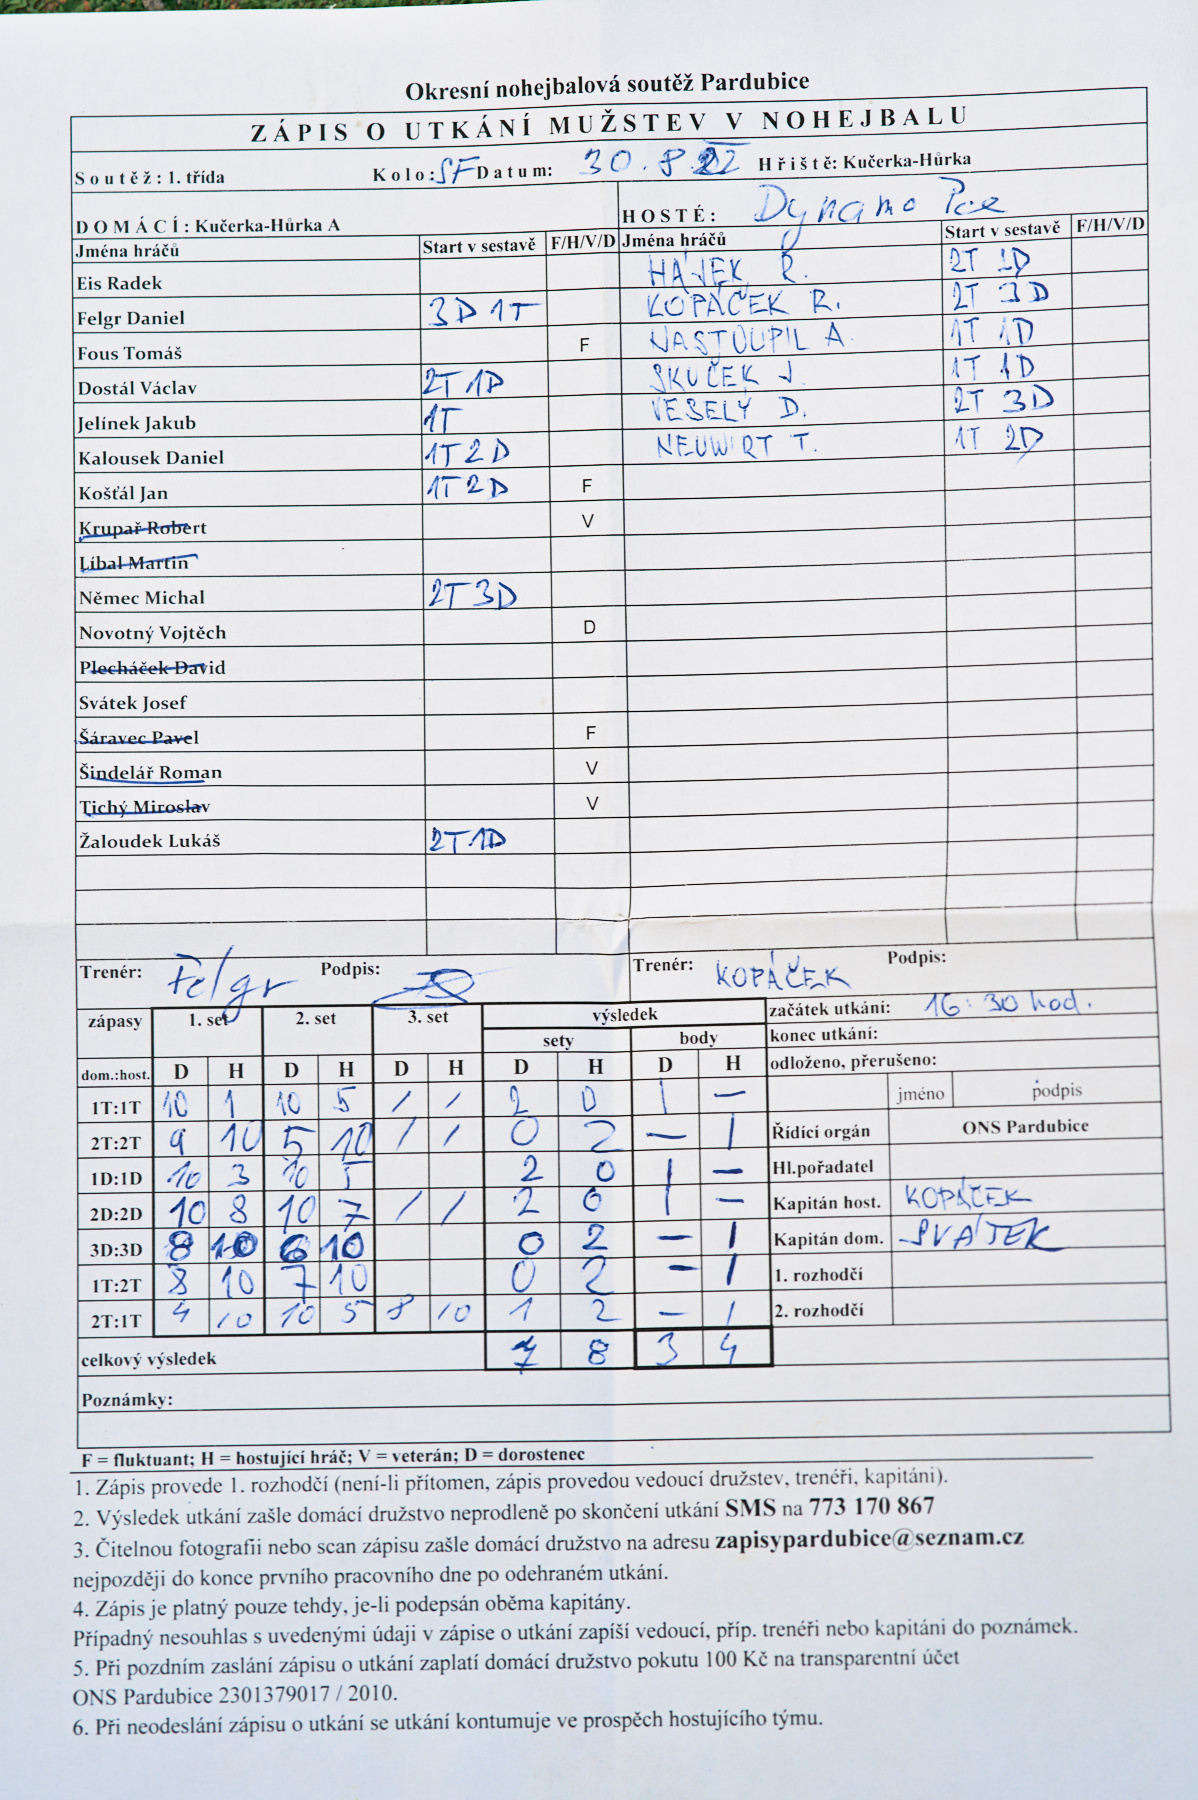 Okresní nohejbalová soutěž Pardubice
ZÁPIS O UTKÁNÍ MUŽSTEV V NOHEJBALU
Soutěž: 1. třída Kolo: SF Datum: 30.8.22 Hřiště: Kučerka-Hůrka
DOMÁCÍ: Kučerka-Hůrka A HOSTÉ: Dynamo Pce
Jména hráčů Start v sestavě F/H/V/D Jména hráčů Start v sestavě F/H/V/D
Eis Radek HÁJEK R. 2T 2D
Felgr Daniel 3D 1T KOPÁČEK R. 2T 3D
Fous Tomáš F NASTOUPIL A. 1T 1D
Dostál Václav 2T 1D SKUČEK J. 1T 1D
Jelínek Jakub 1T VESELÝ D. 2T 3D
Kalousek Daniel 1T 2D NEUWIRT T. 1T 2D
Košťál Jan 1T 2D F
Krupař Robert V
Líbal Martin
Němec Michal 2T 3D
Novotný Vojtěch D
Plecháček David
Svátek Josef
Šáravec Pavel F
Šindelář Roman V
Tichý Miroslav V
Žaloudek Lukáš 2T 1D
Trenér: Felgr Podpis: Trenér: KOPÁČEK Podpis:
zápasy 1. set 2. set 3. set výsledek začátek utkání: 16:30 hod.
sety body konec utkání:
dom.:host. D H D H D H D H D H odloženo, přerušeno:
1T:1T 10 1 10 5 / / 2 0 1 – jméno podpis
2T:2T 9 10 5 10 / / 0 2 – 1 Řídící orgán ONS Pardubice
1D:1D 10 3 10 5 2 0 1 – Hl.pořadatel
2D:2D 10 8 10 7 / / 2 0 1 – Kapitán host. KOPÁČEK
3D:3D 8 10 6 10 0 2 – 1 Kapitán dom. SVÁTEK
1T:2T 8 10 7 10 0 2 – 1 1. rozhodčí
2T:1T 4 10 10 5 8 10 1 2 – 1 2. rozhodčí
celkový výsledek 7 8 3 4
Poznámky:
F = fluktuant; H = hostující hráč; V = veterán; D = dorostenec
1. Zápis provede 1. rozhodčí (není-li přítomen, zápis provedou vedoucí družstev, trenéři, kapitáni).
2. Výsledek utkání zašle domácí družstvo neprodleně po skončení utkání SMS na 773 170 867
3. Čitelnou fotografii nebo scan zápisu zašle domácí družstvo na adresu zapisypardubice@seznam.cz
nejpozději do konce prvního pracovního dne po odehraném utkání.
4. Zápis je platný pouze tehdy, je-li podepsán oběma kapitány.
Případný nesouhlas s uvedenými údaji v zápise o utkání zapíší vedoucí, příp. trenéři nebo kapitáni do poznámek.
5. Při pozdním zaslání zápisu o utkání zaplatí domácí družstvo pokutu 100 Kč na transparentní účet
ONS Pardubice 2301379017 / 2010.
6. Při neodeslání zápisu o utkání se utkání kontumuje ve prospěch hostujícího týmu.